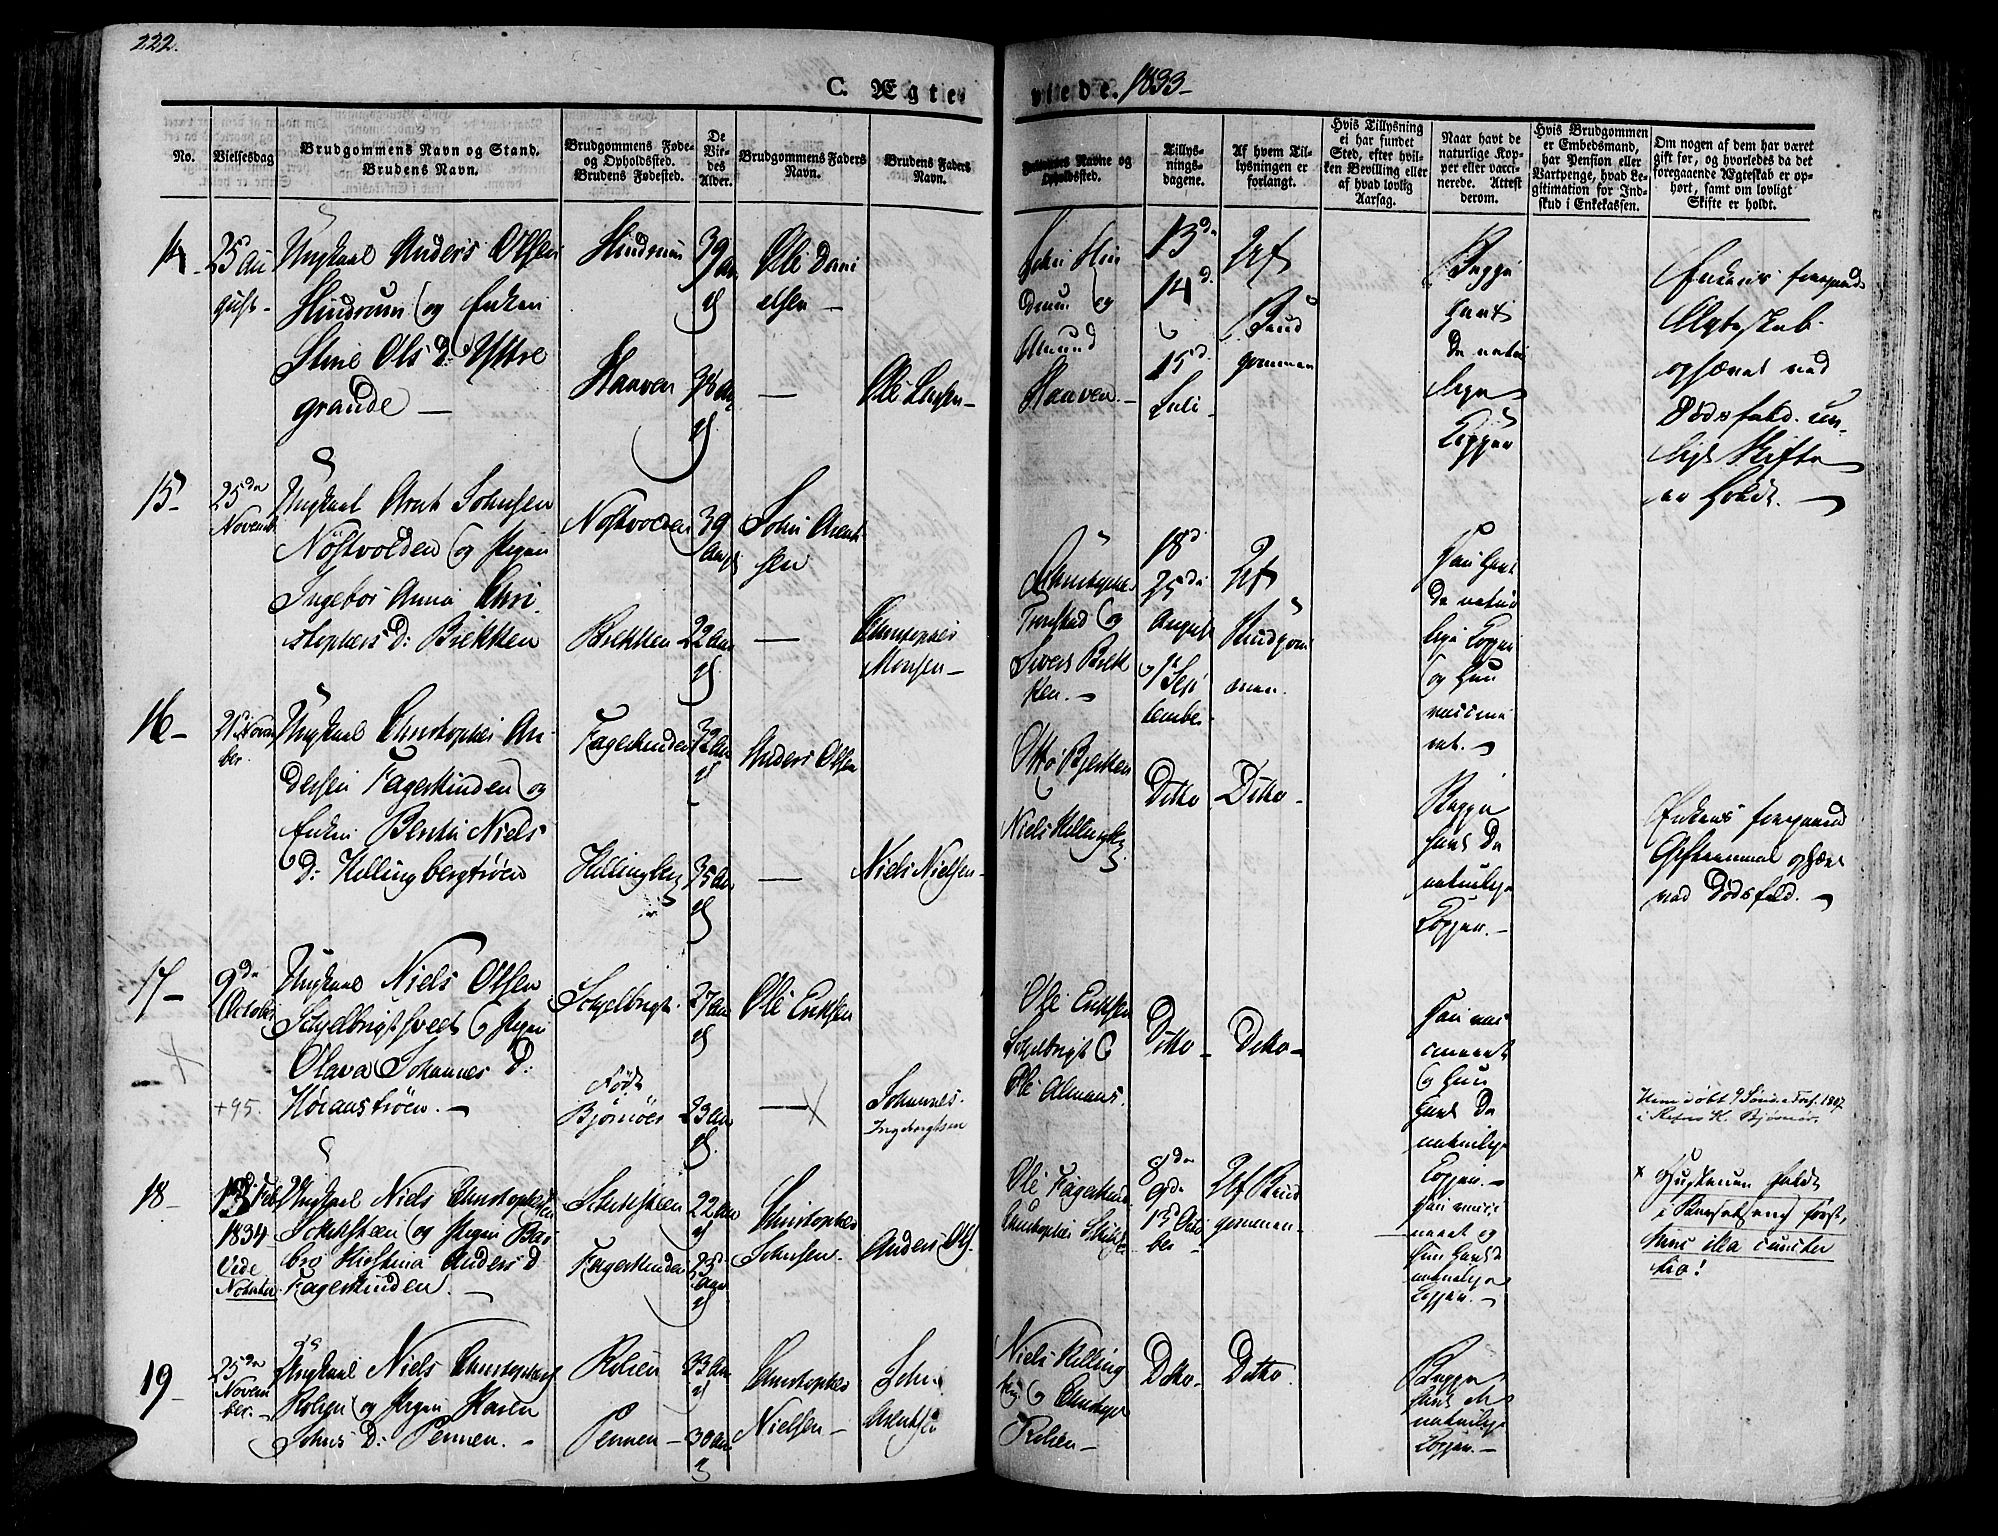 222.
C. Ægte
viede. 1833-
No.
Vielsesdag
Brudgommens Navn og Stand.
Brudens Navn.
Brudgommens Føde-
og Opholdssted.
Brudens Fødested.
De
Vie-
des
Alder.
Brudgommens Faders
Navn.
Brudens Faders
Navn.
Forlovernes Navne og
Opholdssted.
Tillys-
nings-
dagene.
Af hvem Til-
lysningen er
forlangt.
Hvis Tillysning
ei har fundet
Sted, efter hvil-
ken Bevilling eller
af hvad lovlig
Aarsag.
Naar havt de
naturlige Kop-
per eller vacci-
nerede. Attest
derom.
Hvis Brudgommen
er Embedsmand,
har Pension eller
Vartpenge, hvad Le-
gitimation for Ind-
skud i Enkekassen.
Om nogen af dem har været
gift før, og hvorledes da det
foregaaende Ægteskab er op-
hørt, samt om lovligt
Skifte er holdt.
14-
25 Au
gust-
Ungkaal Anders Olsen
Hindrum og Enken
Stine Ols D: Yttre
grande -
Hindrum
Haaven
39 aar
Ole Dani
elsen -
-
Ole Larsen -
John Hin
drum og
Amund
Haaven -
13de
14d.
15d.
Juli -
Af
Brud
gommen
Begge
havt
de natur
lige
Kopper
Enkens foregaaende
Ægteskab
ophævet ved
Dødsfald.
Skifte
er holdt. -
15-
25de
Novemb.
Ungkaal Arnt Johnsen
Nøstvolden og Pigen
Ingebor Anna Chri-
stophers D: Brekken
Nøstvolden
Brekken
39
aar
22 aar
John Arent
sen
-
Christopher
Monsen -
Christopher
og
Sivers Brek
ken. -
18d.
25de
August
1ste Sep
tember.
Af
Brudgom
men.
Han havt
de natur
lige Kopper
og hun
vaccine
ret. -
16-
21de Novem
ber.
Ungkaal Christopher An-
dersen Fagerkinden og
Enken Berthe Niels
D: Hellingbergtrøen
Fagerkinden
Hellingberg
32 aar
35 aar
Anders Olsen
-
Niels Nielsen -
Otto Bjerken
Niels Hellingberg
Ditto
Ditto -
Begge
havt de
naturlige
Kopper. -
Enkens foregaaend
Giftermaal ophævet
ved Dødsfald. -
17-
9de
October
+95.
Ungkaal Niels Olsen
og Pigen
Olava Johannes D:
-
Schjelbrigt.
Født
Bjørnøer
27 aar
23 aar
Ole Eriksen
-
Johannes
Ingebrigtsen
Ole Eriksen
Schelbrigt &
Ole
Ditto -
Ditto -
Han vac
cineret
og Hun
havt de
naturlige
Kopper. -
Hun døbt 9 Sønd e Tref. 1807
i Refsn K. Bjørnør.
18-
13 Feb
1834
Vide
Noten
Ungkaal Niels Christophersen
og Pigen Bar
bro Kirstina Anders D
Fagerkinden. -
Fagerkinden
22 aar
23
aar
Christopher
Johnsen -
Anders Ols
Ole Fagerkind
Christopher
8de
9de
13d Octo
ber
Af Brud
gommen -
Han vacci
neret og
Hun havt de
naturlige
Kopper. -
19-
25de
Novem
ber. -
Ungkaal Niels Christophers
Rolsen og Pigen Karen
Johns D: Pennen. -
Rolsen
Pennen -
33 aar
30 aar
Christopher
Nielsen -
John
Arentsen
Niels Helling
berg og Christopher
Rolsen -
Ditto -
Ditto.
Begge
havt de
naturlige
Kopper. -